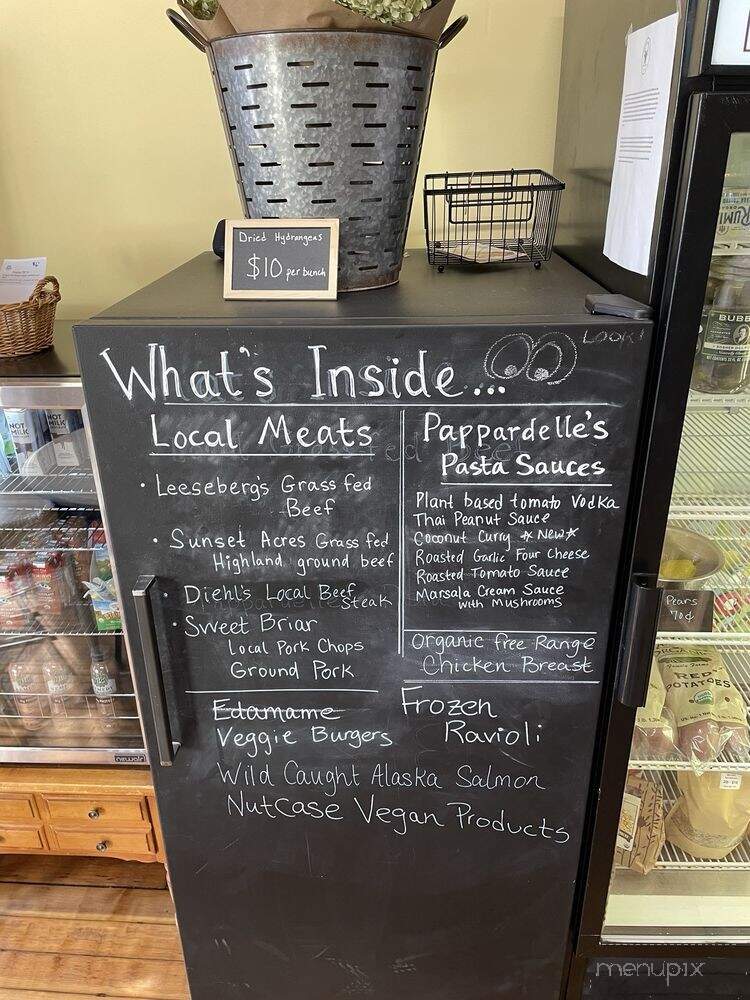 Dried Hydrangeas
$10 per bunch
LOOK!
What's Inside...
Local Meats
• Leeseberg's Grass fed
Beef
• Sunset Acres Grass fed
Highland ground beef
• Diehl's Local Beef
Steak
• Sweet Briar
Local Pork Chops
Ground Pork
Pappardelle's
Pasta Sauces
Plant based tomato Vodka
Thai Peanut Sauce
Coconut Curry *New*
Roasted Garlic Four Cheese
Roasted Tomato Sauce
Marsala Cream Sauce
with Mushrooms
Organic free Range
Chicken Breast
Edamame
Veggie Burgers
Frozen
Ravioli
Wild Caught Alaska Salmon
Nutcase Vegan Products
NOT
MILK
NOT
MILK
newair
RUMI
BUBB
Pears
70¢
RED
POTATOES
menupix